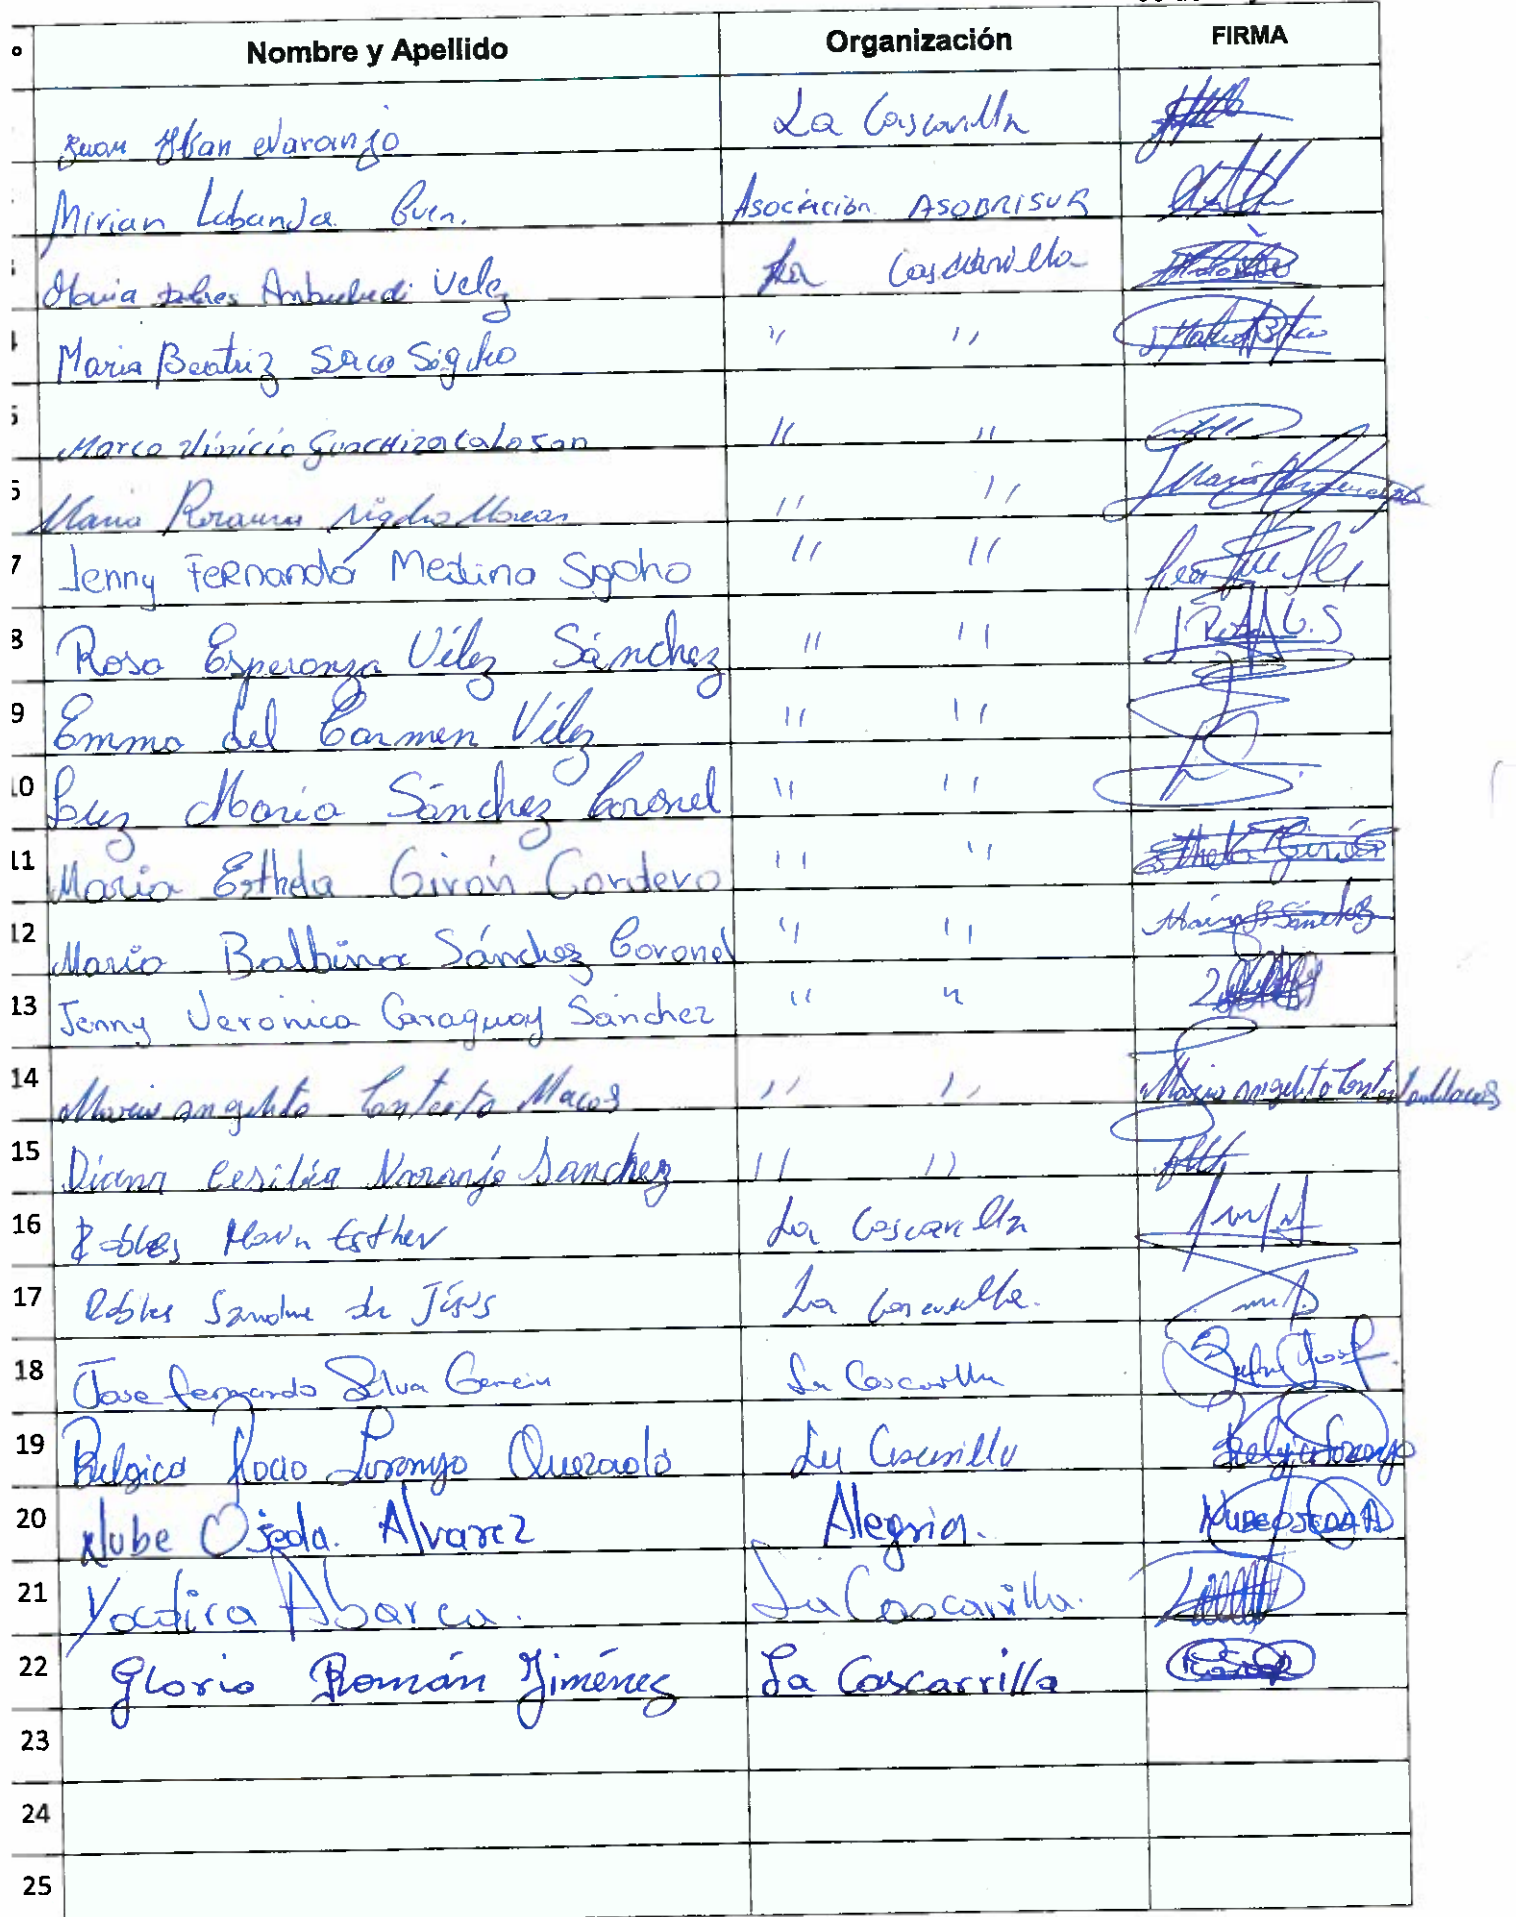 º Nombre y Apellido Organización FIRMA
Juan Naranjo La Cascarilla
Mirian Labanda Asociación ASOBRISUR
Maria Velez La Cascarilla
4 Maria Beatriz Saco Sigcho " "
5 Marco Vinicio " "
6 Maria Rosaura " "
7 Jenny Fernanda Medina Sgcho " "
8 Rosa Esperanza Vélez Sánchez " "
9 Emma del Carmen Vélez " "
10 Luz Maria Sánchez Coronel " "
11 Maria Esthela Girón Cordero " " Esthela Girón
12 Maria Balbina Sánchez Coronel " " Maria B Sánchez
13 Jenny Veronica Caraguay Sánchez " "
14 Maria angelita Macas " " Maria angelita
15 Diana Cesilia Naranjo Sanchez " "
16 Robles Maria Esther La Cascarilla
17 Robles Sandra de Jésus La Cascarilla.
18 Jose fernando Silva Garcia La Cascarilla
19 Belgica Rocio Lozongo Quezada La Cascarilla
20 Nube Ojeda. Alvarez Alegria. NUBE OJEDA A
21 Yadira Abarca. La Cascarilla.
22 Gloria Román Jiménez La Cascarrilla
23
24
25